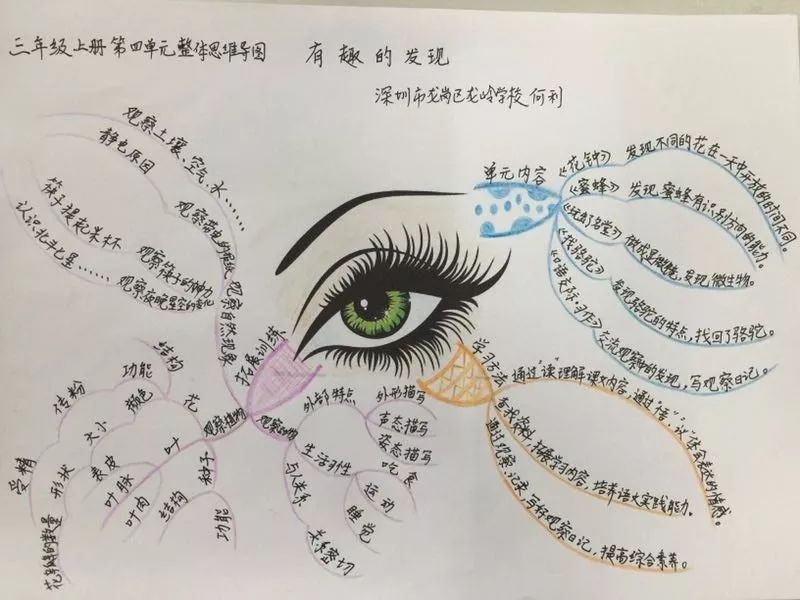 三年级上册第四单元整体思维导图
有趣的发现
深圳市龙岗区龙岭学校 何利
单元内容
《花钟》 发现不同的花在一天中开放的时间不同。
《蜜蜂》 发现蜜蜂有识别方向的能力。
《玩出了名堂》 微成显微镜,发现微生物。
《找骆驼》 发现骆驼的特点,找回了骆驼。
《口语交际·习作》 交流观察中的发现,写观察日记。
学习方法
通过“读”理解课文内容,通过“悟”、“议”体会表达的情感。
查找资料,拓展学习内容,培养语文实践能力。
通过观察、记录,写好观察日记,提高综合素养。
拓展训练
观察自然现象
观察土壤、空气、水……
观察带电的
静电原因
观察筷子的神力
筷子提起米杯
观察夜晚星空的变化
认识北斗七星……
观察植物
花
结构
功能
颜色
传粉
受精
叶
大小
形状
表皮
叶脉
叶肉
种子
结构
花
的数量
观察动物
外部特点
外形描写
声态描写
姿态描写
生活习性
吃食
运动
睡觉
与人关系
关系密切